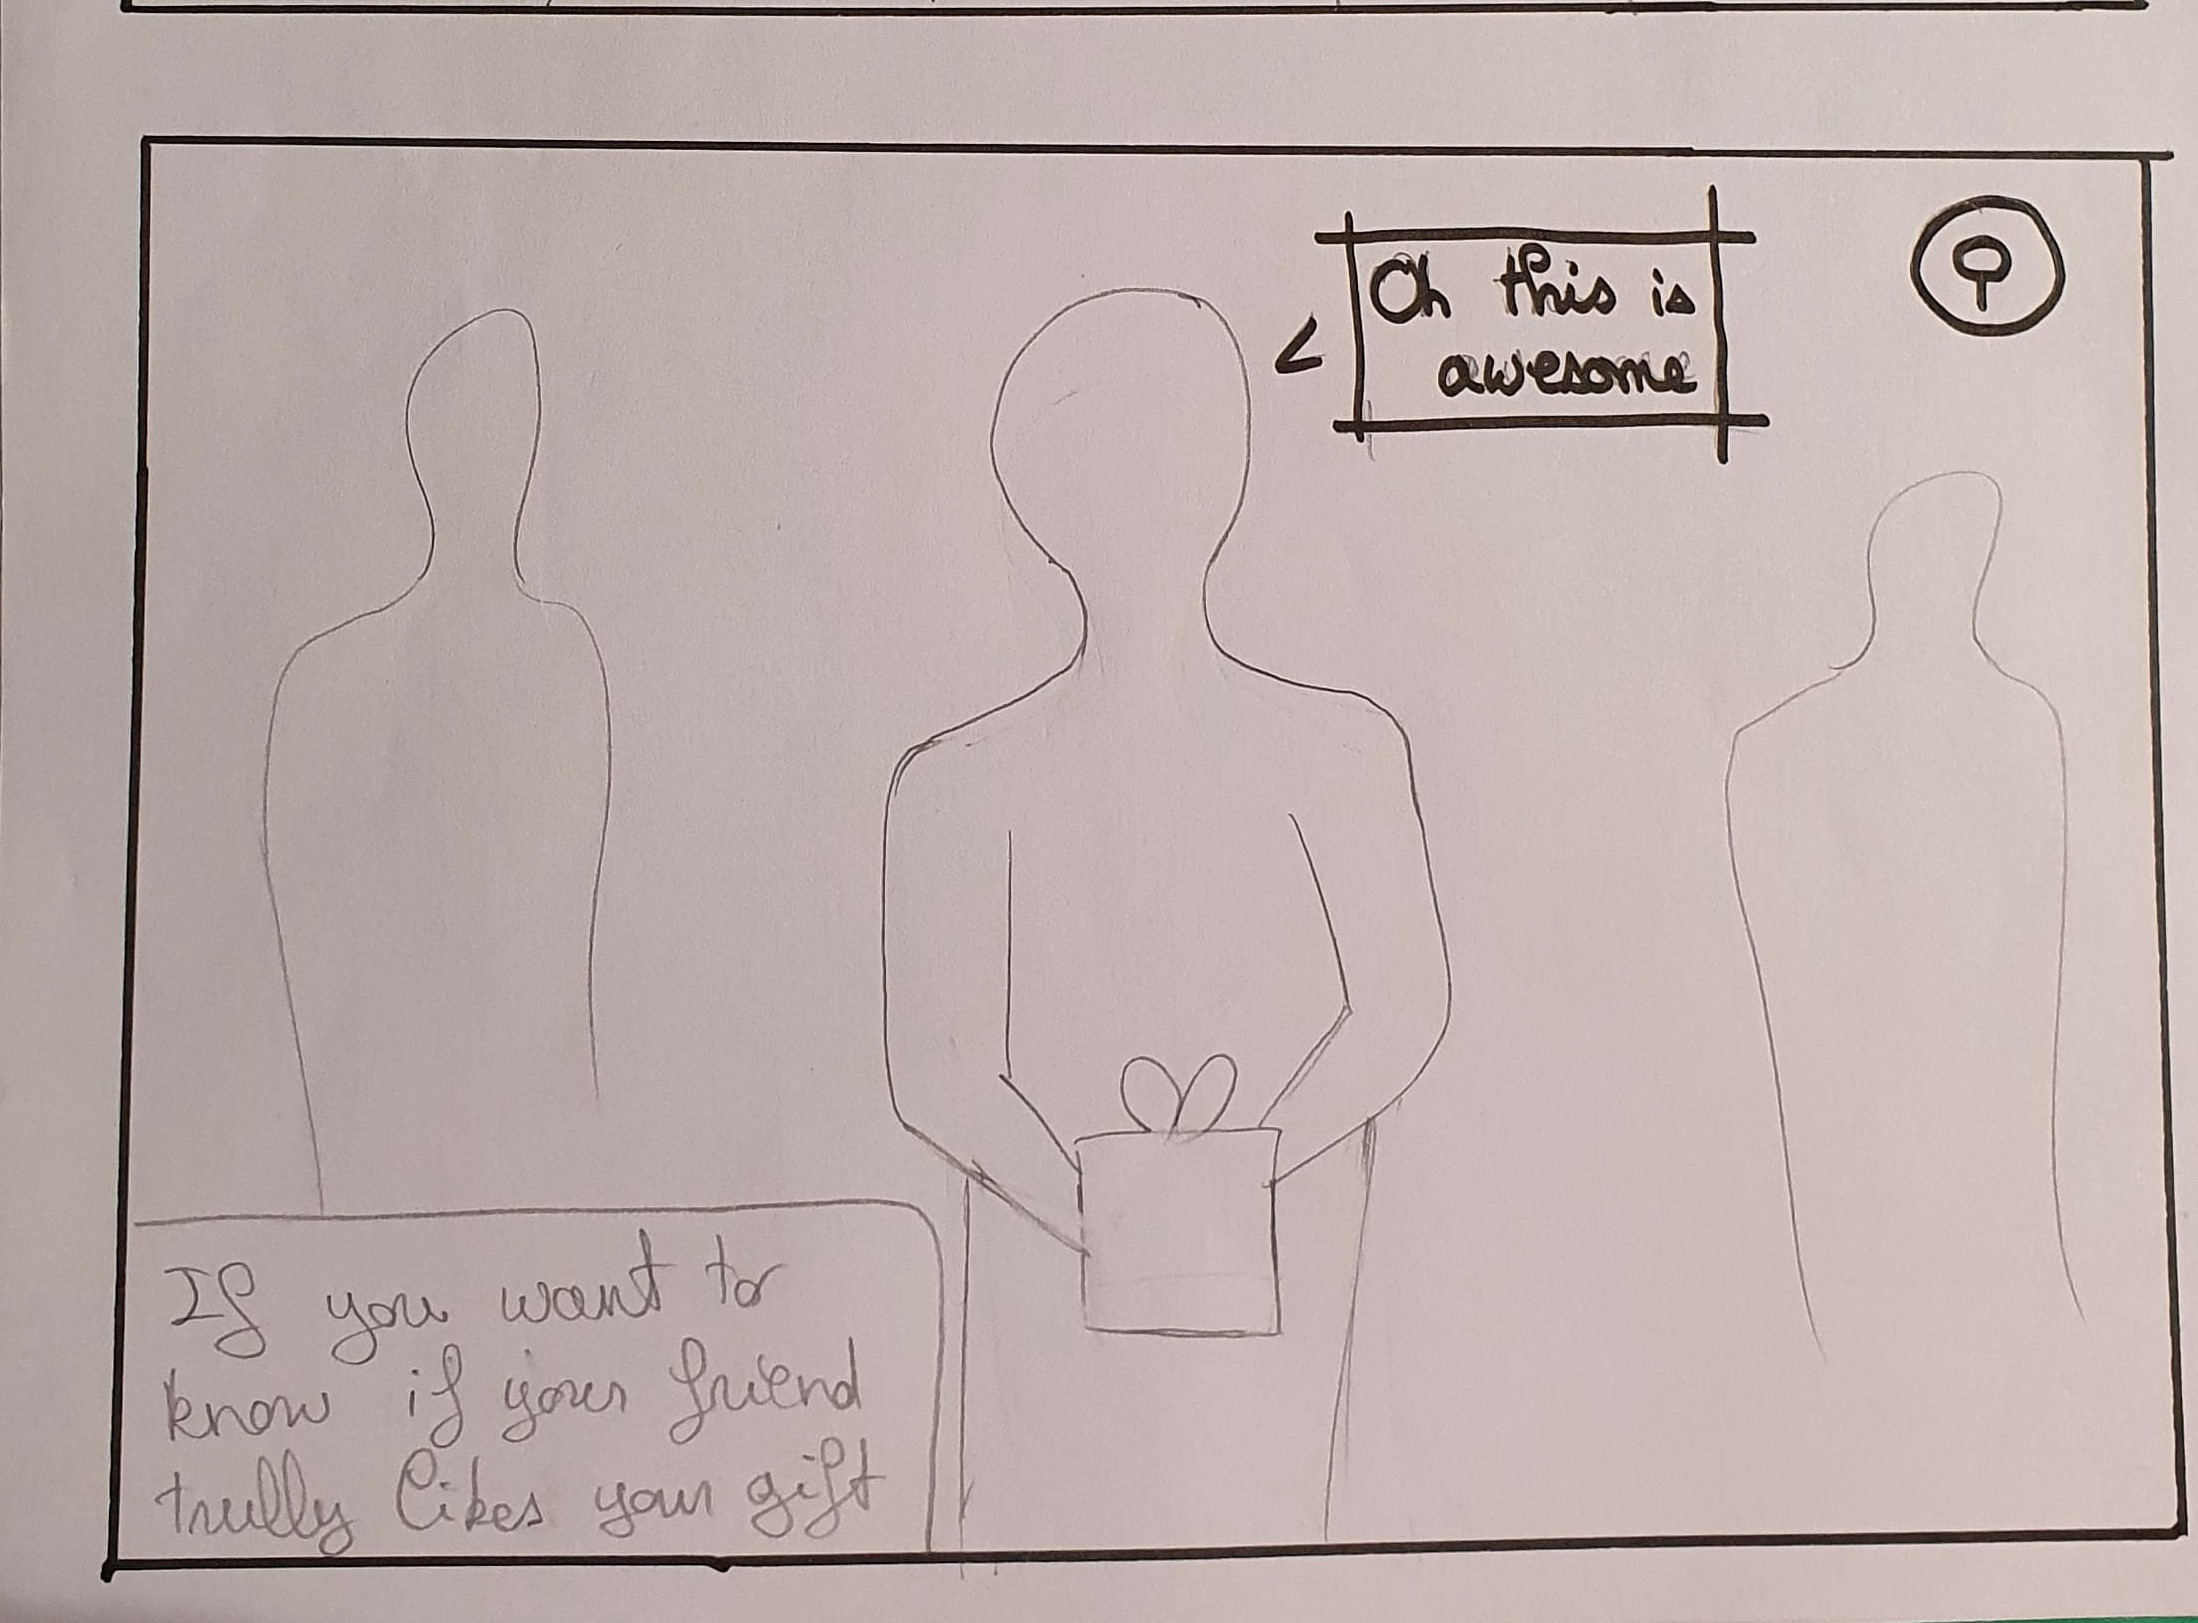 Oh this is
awesome
If you want to
know if your friend
trully likes your gift